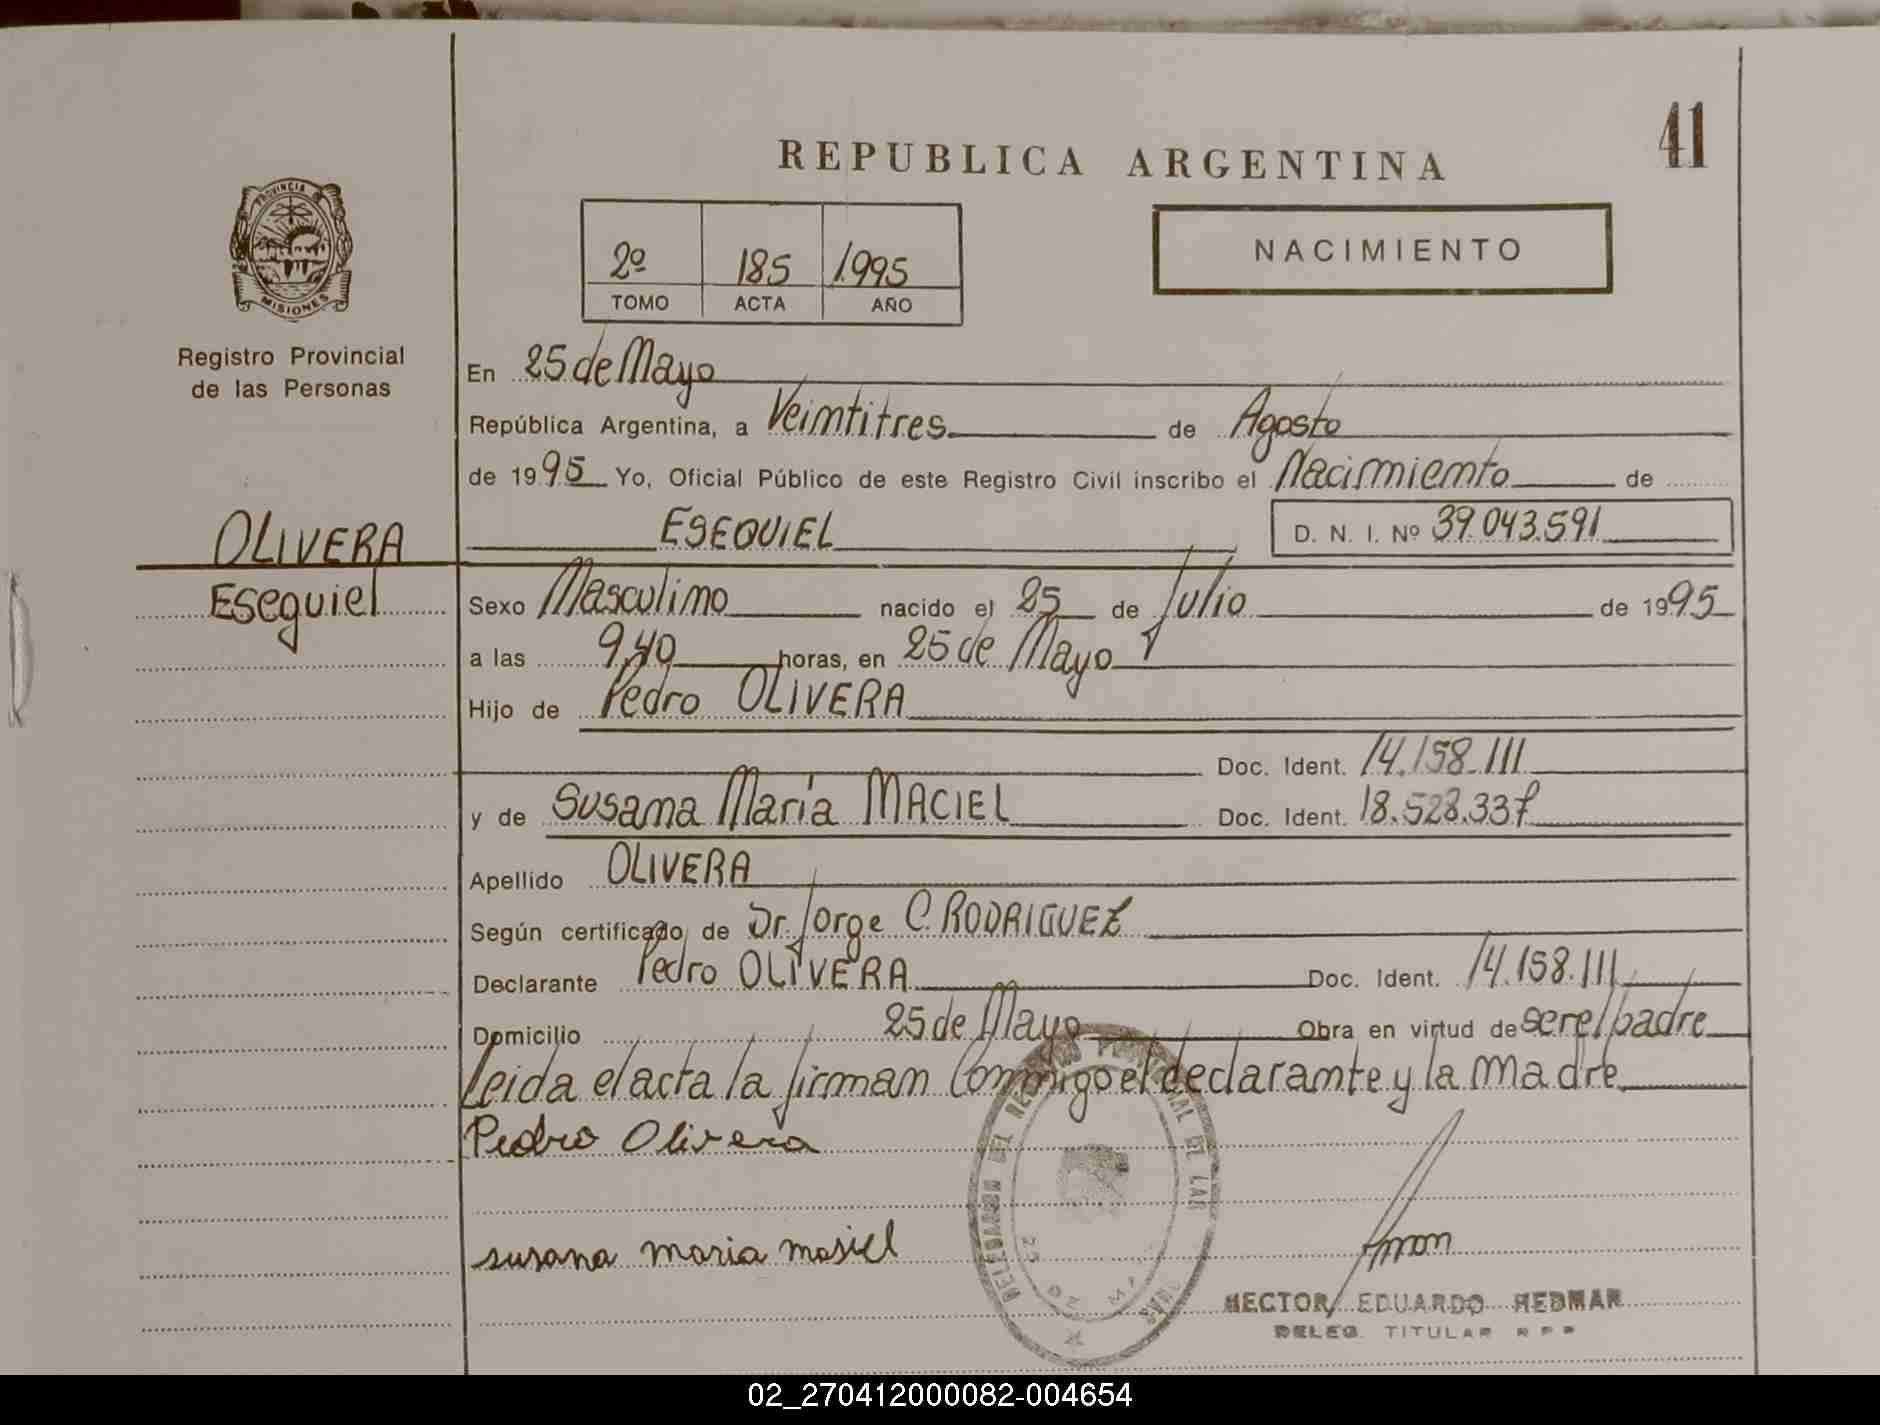 REPUBLICA ARGENTINA
41
PROVINCIA
MISIONES
Registro Provincial
de las Personas
2º 185 1.995
TOMO ACTA AÑO
NACIMIENTO
En 25 de Mayo
República Argentina, a Veimtitres de Agosto
de 1995 Yo, Oficial Público de este Registro Civil inscribo el Nacimiento de
OLIVERA
Esequiel
ESEQUIEL D. N. I. Nº 39.043.591
Sexo Masculino nacido el 25 de Julio de 1995
a las 9,40 horas, en 25 de Mayo
Hijo de Pedro OLIVERA
Doc. Ident. 14.158.111
y de Susana María MACIEL Doc. Ident. 18.528.337
Apellido OLIVERA
Según certificado de Dr. Jorge C. RODRIGUEZ
Declarante Pedro OLIVERA Doc. Ident. 14.158.111
Domicilio 25 de Mayo Obra en virtud de ser el padre
Leida el acta la firman Conmigo el declarante y la madre
Pedro Olivera
susana maria masiel
DEL REGISTRO PROVINCIAL DE LAS
25 DE
HECTOR EDUARDO HEDMAN
DELEG. TITULAR R P P
02_270412000082-004654